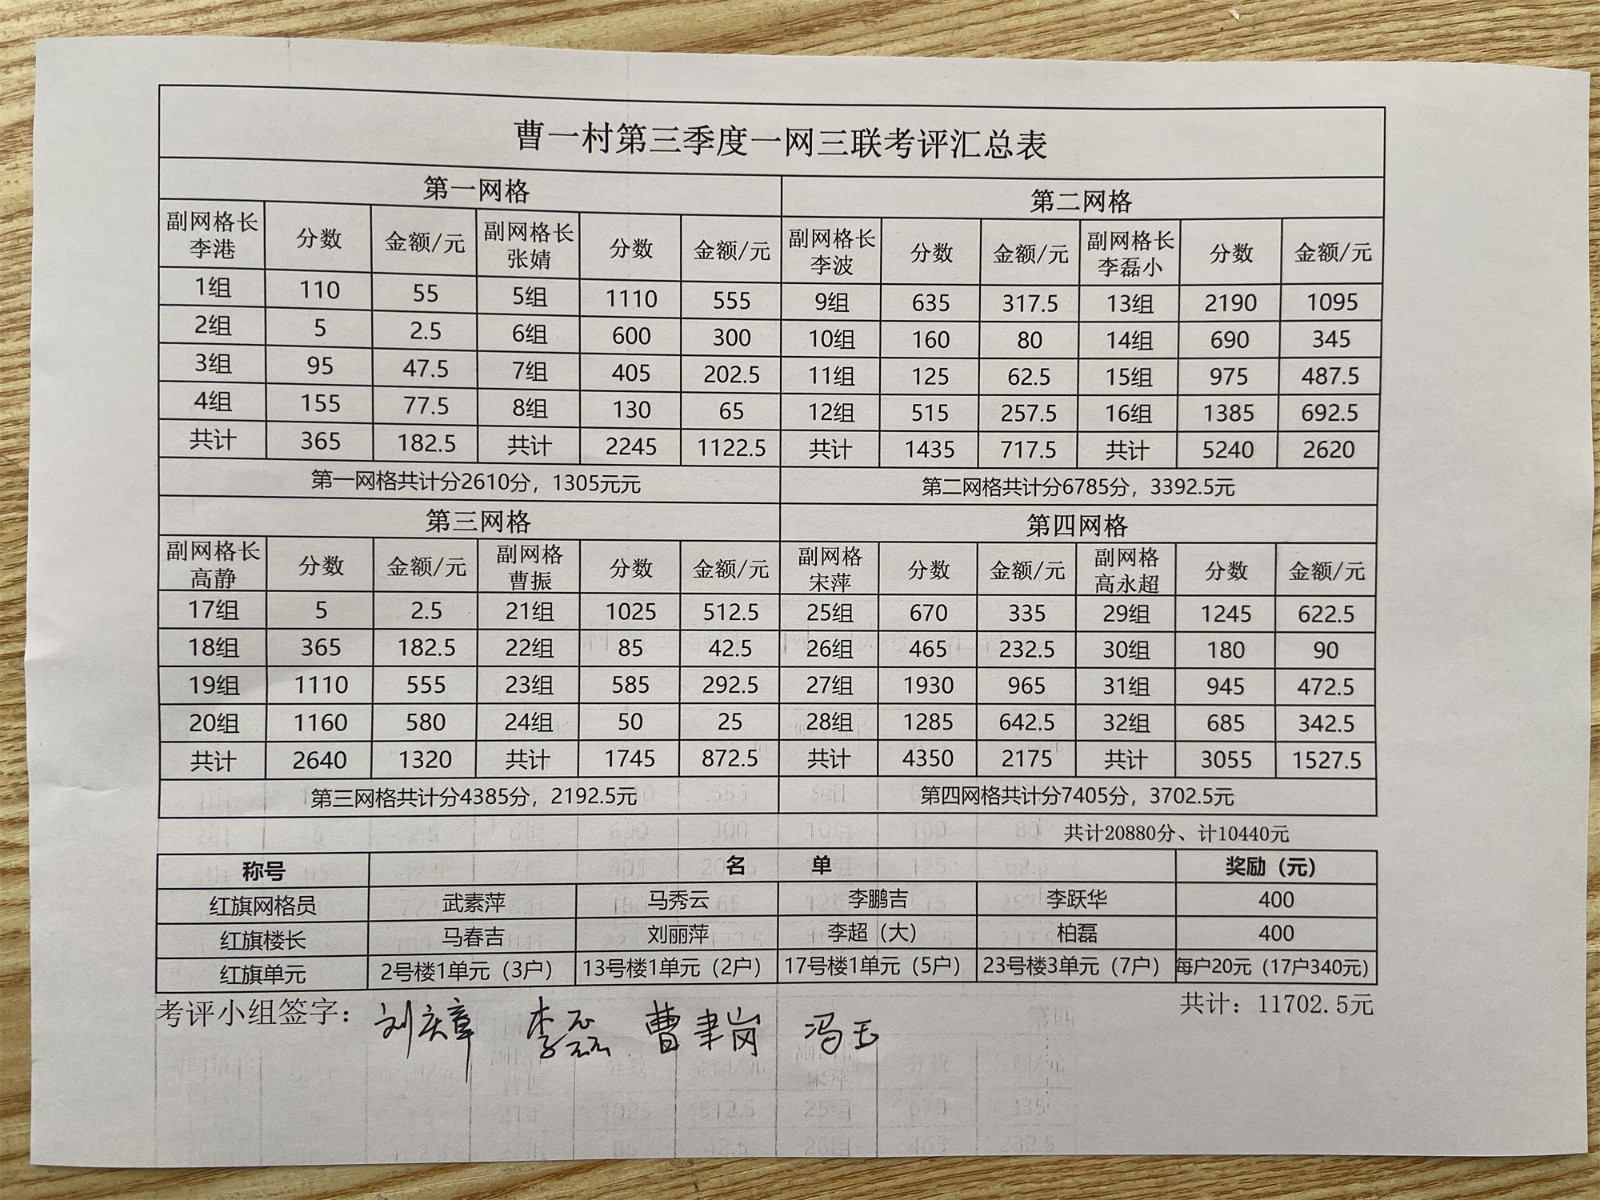 曹一村第三季度一网三联考评汇总表
第一网格 第二网格
副网格长李港 分数 金额/元 副网格长张婧 分数 金额/元 副网格长李波 分数 金额/元 副网格长李磊小 分数 金额/元
1组 110 55 5组 1110 555 9组 635 317.5 13组 2190 1095
2组 5 2.5 6组 600 300 10组 160 80 14组 690 345
3组 95 47.5 7组 405 202.5 11组 125 62.5 15组 975 487.5
4组 155 77.5 8组 130 65 12组 515 257.5 16组 1385 692.5
共计 365 182.5 共计 2245 1122.5 共计 1435 717.5 共计 5240 2620
第一网格共计分2610分，1305元元 第二网格共计分6785分，3392.5元
第三网格 第四网格
副网格长高静 分数 金额/元 副网格曹振 分数 金额/元 副网格宋萍 分数 金额/元 副网格高永超 分数 金额/元
17组 5 2.5 21组 1025 512.5 25组 670 335 29组 1245 622.5
18组 365 182.5 22组 85 42.5 26组 465 232.5 30组 180 90
19组 1110 555 23组 585 292.5 27组 1930 965 31组 945 472.5
20组 1160 580 24组 50 25 28组 1285 642.5 32组 685 342.5
共计 2640 1320 共计 1745 872.5 共计 4350 2175 共计 3055 1527.5
第三网格共计分4385分，2192.5元 第四网格共计分7405分，3702.5元
共计20880分、计10440元
称号 名 单 奖励（元）
红旗网格员 武素萍 马秀云 李鹏吉 李跃华 400
红旗楼长 马春吉 刘丽萍 李超（大） 柏磊 400
红旗单元 2号楼1单元（3户） 13号楼1单元（2户） 17号楼1单元（5户） 23号楼3单元（7户） 每户20元（17户340元）
考评小组签字： 刘庆章 李磊 曹聿岗 冯玉 共计：11702.5元